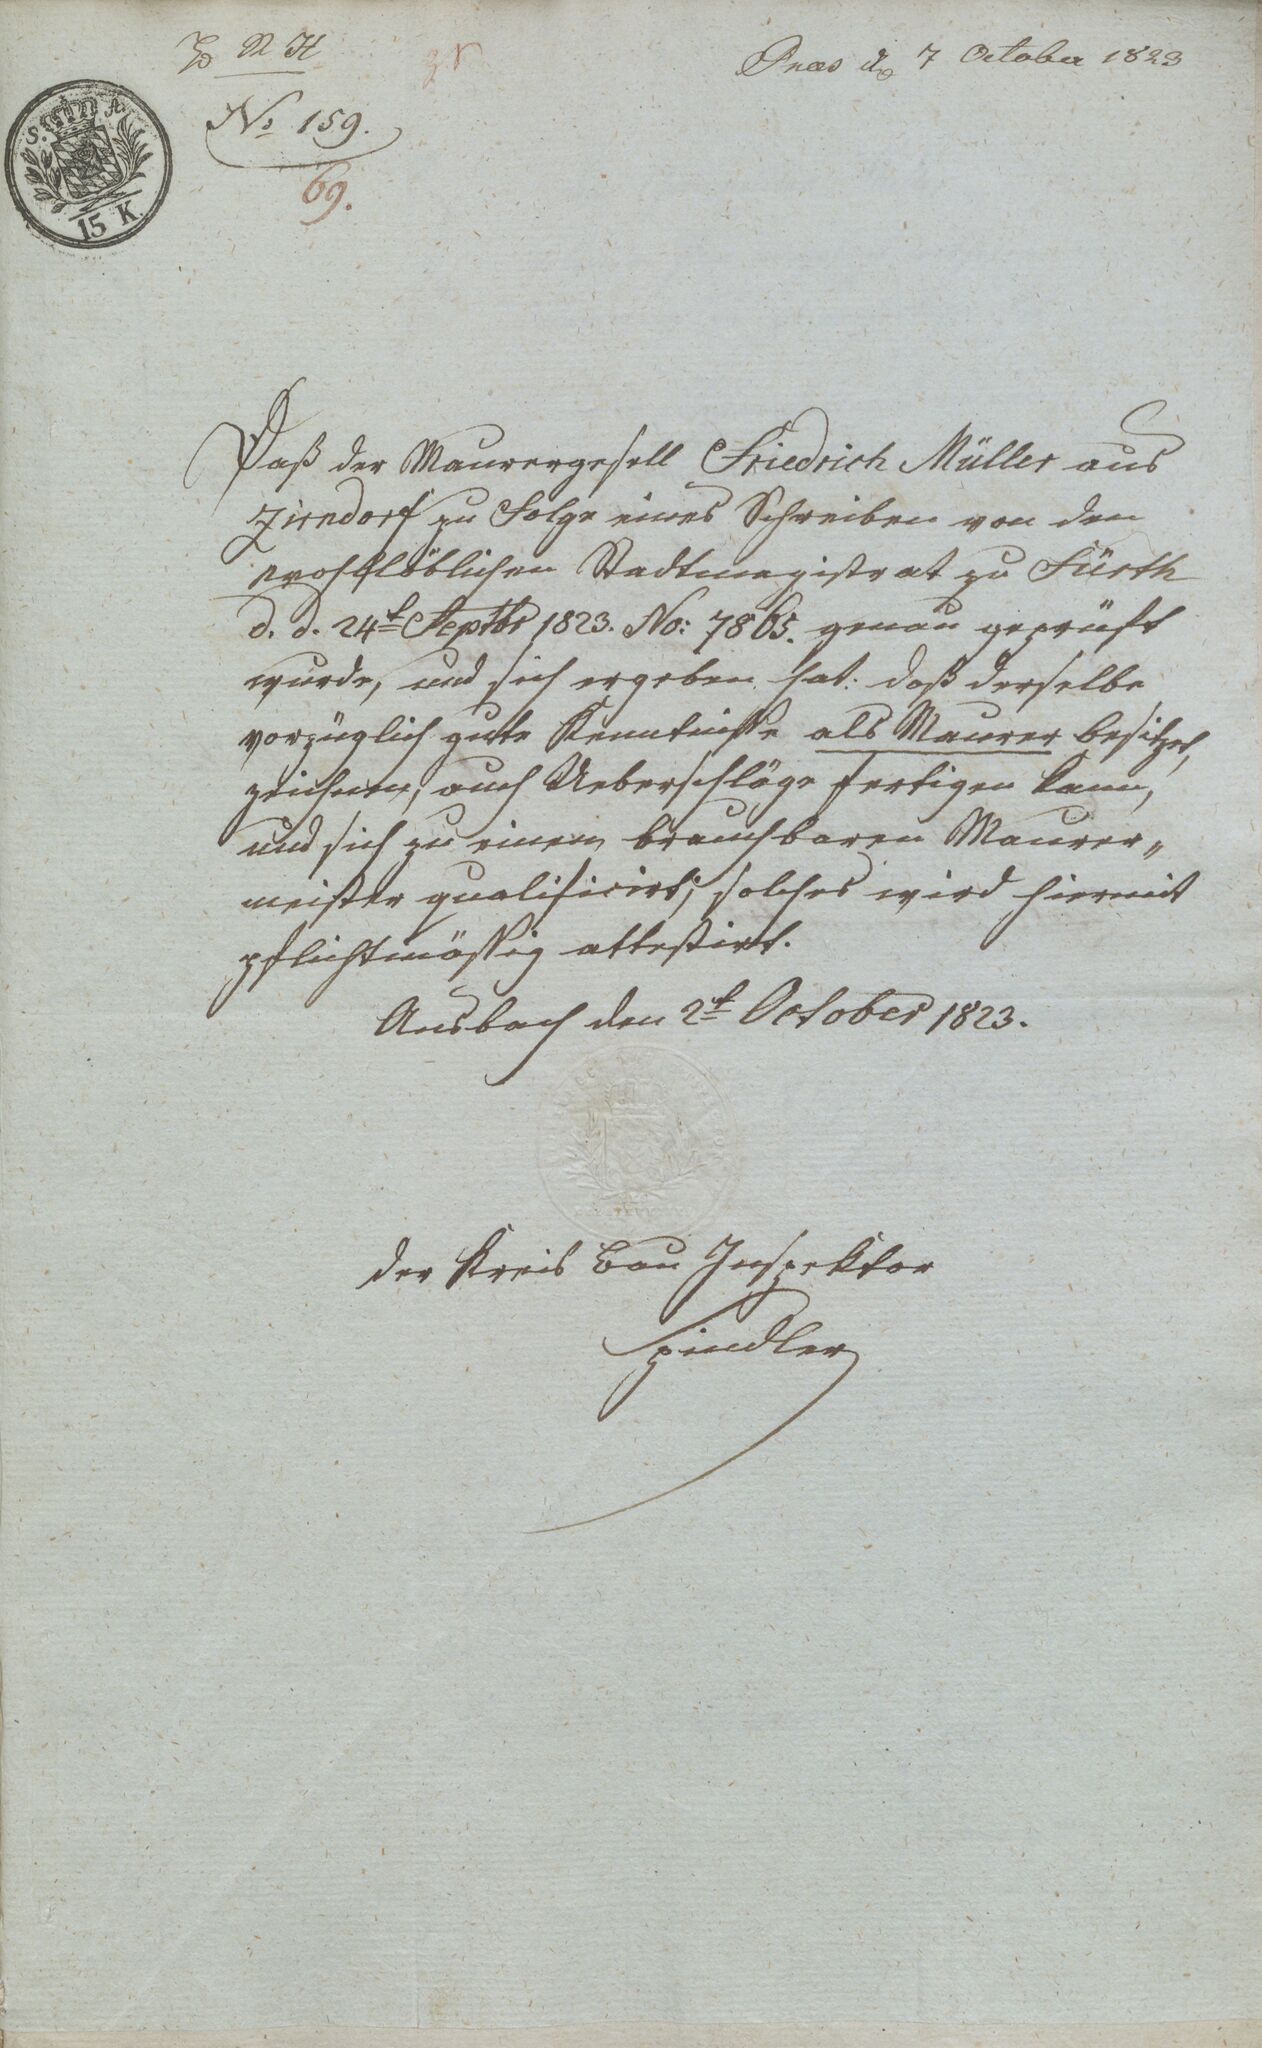 Praes d. 7 October 1823
N H
S. A.
15 K
No 159.
69.
Daß der Maurergesell Friedrich Müller aus
Zirndorf zu Folge eines Schreiben von den
wohllöblichen Stadtmagistrat zu Fürth
d. d. 24t Septbr 1823. No: 7865. genau geprüft
wurde, und sich ergeben hat: daß derselbe
vorzüglich gute Kenntniße als Maurer besitzet,
zeichnen, auch Ueberschläge fertigen kann,
und sich zu einem brauchbaren Maurer„
meister qualificirt; solches wird hiermit
pflichtmässig attestirt.
Ansbach den 2t October 1823.
der Kreis Bau Inspektor
Spindler